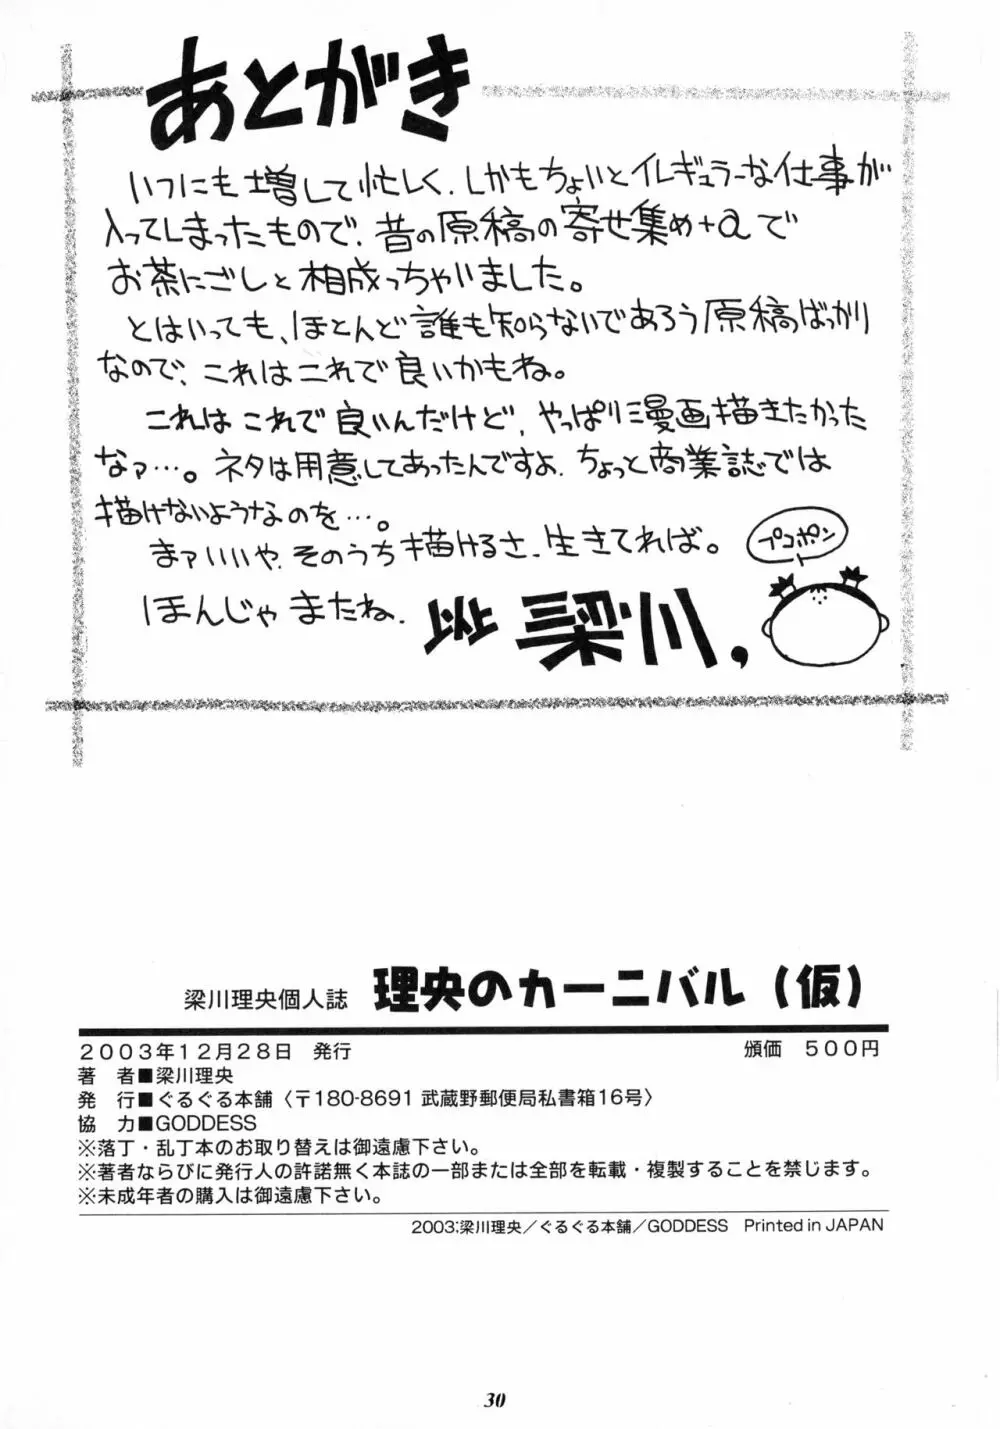 あとがき
いつにも増して忙しく、しかもちょいとイレギュラーな仕事が
入ってしまったもので、昔の原稿の寄せ集め+αで
お茶にごしと相成っちゃいました。
とはいっても、ほとんど誰も知らないであろう原稿ばっかり
なので、これはこれで良いかもね。
これはこれで良いんだけど、やっぱり漫画描きたかった
なァ…。ネタは用意してあったんですよ、ちょっと商業誌では
描けないようなのを…。
まァいいや、そのうち描けるさ、生きてれば。
プコポン
ほんじゃまたね、
梁川，
梁川理央個人誌 理央のカーニバル（仮）
2003年12月28日 発行 頒価 500円
著 者■梁川理央
発 行■ぐるぐる本舗〈〒180-8691 武蔵野郵便局私書箱16号〉
協 力■GODDESS
※落丁・乱丁本のお取り替えは御遠慮下さい。
※著者ならびに発行人の許諾無く本誌の一部または全部を転載・複製することを禁じます。
※未成年者の購入は御遠慮下さい。
2003:梁川理央／ぐるぐる本舗／GODDESS Printed in JAPAN
30